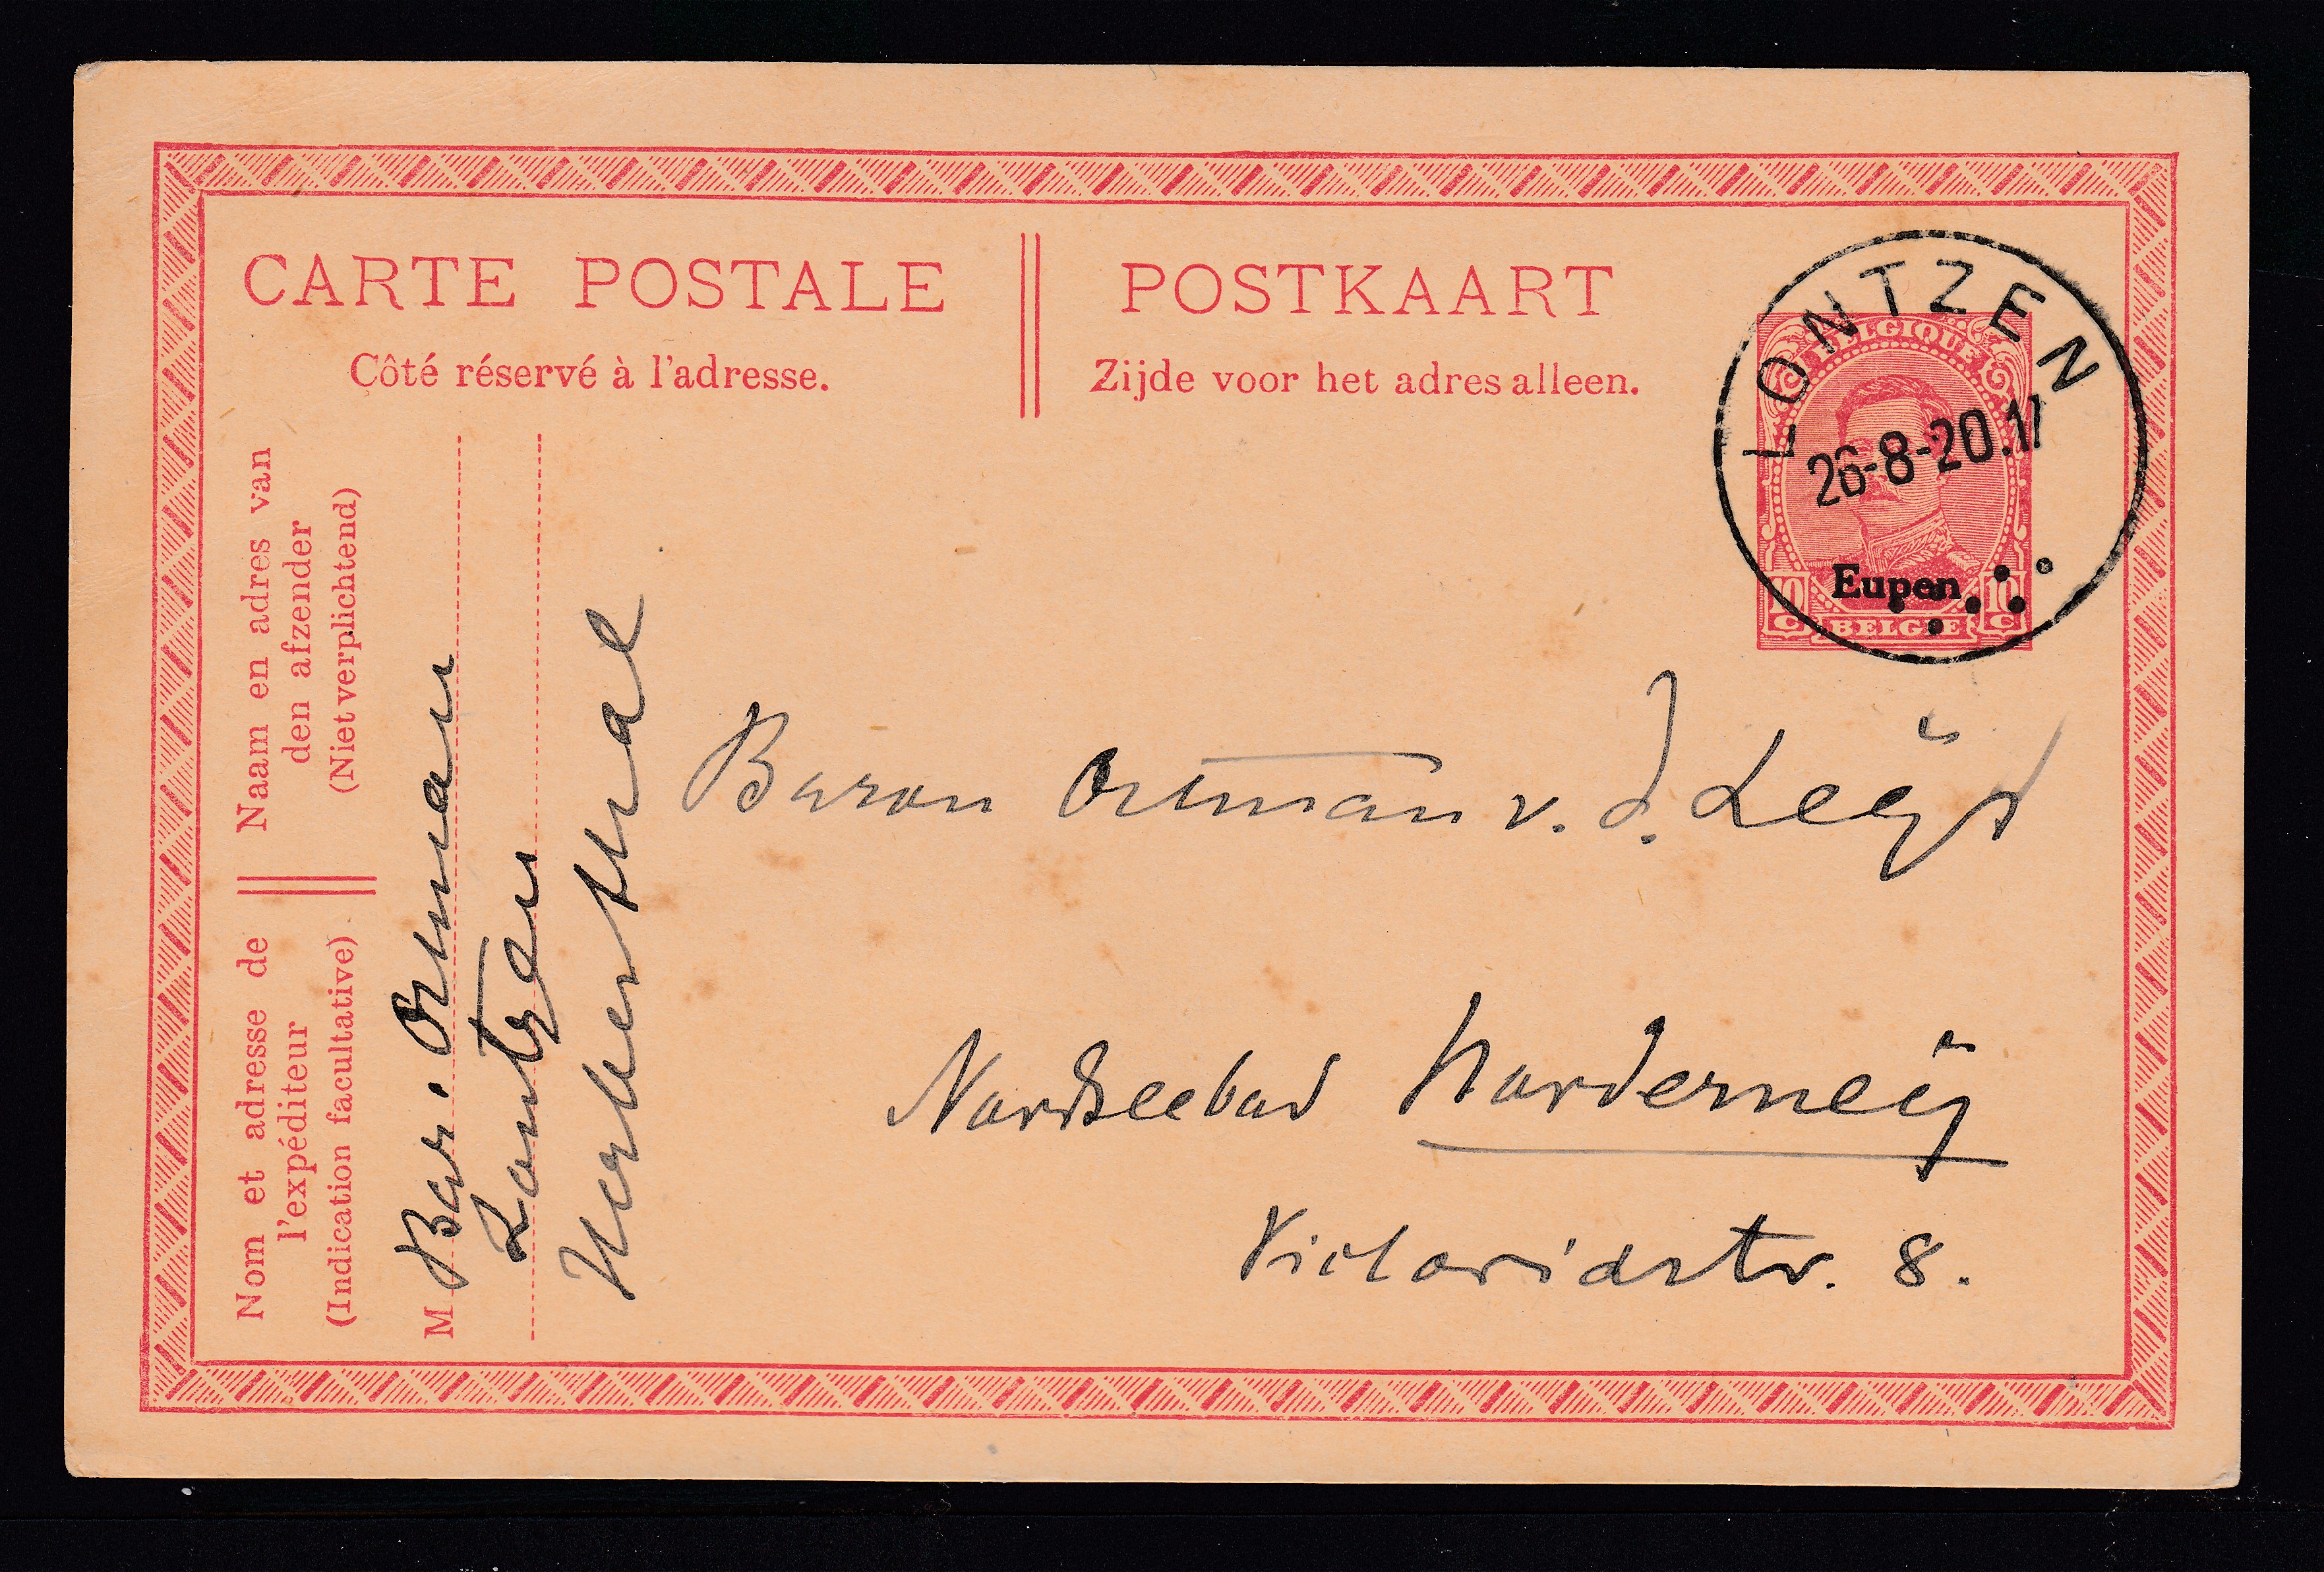 CARTE POSTALE
Côté réservé à l'adresse.
POSTKAART
Zijde voor het adres alleen.
LONTZEN
26-8-20.17
BELGIQUE
Eupen
10 C BELGIË 10 C
Naam en adres van
den afzender
(Niet verplichtend)
Nom et adresse de
l'expéditeur
(Indication facultative)
M Bar. Ortman
Lontzen
Herbesthal
Baron Ortman v. d. Leÿ
Nordseebad Norderneÿ
Victoriastr. 8.